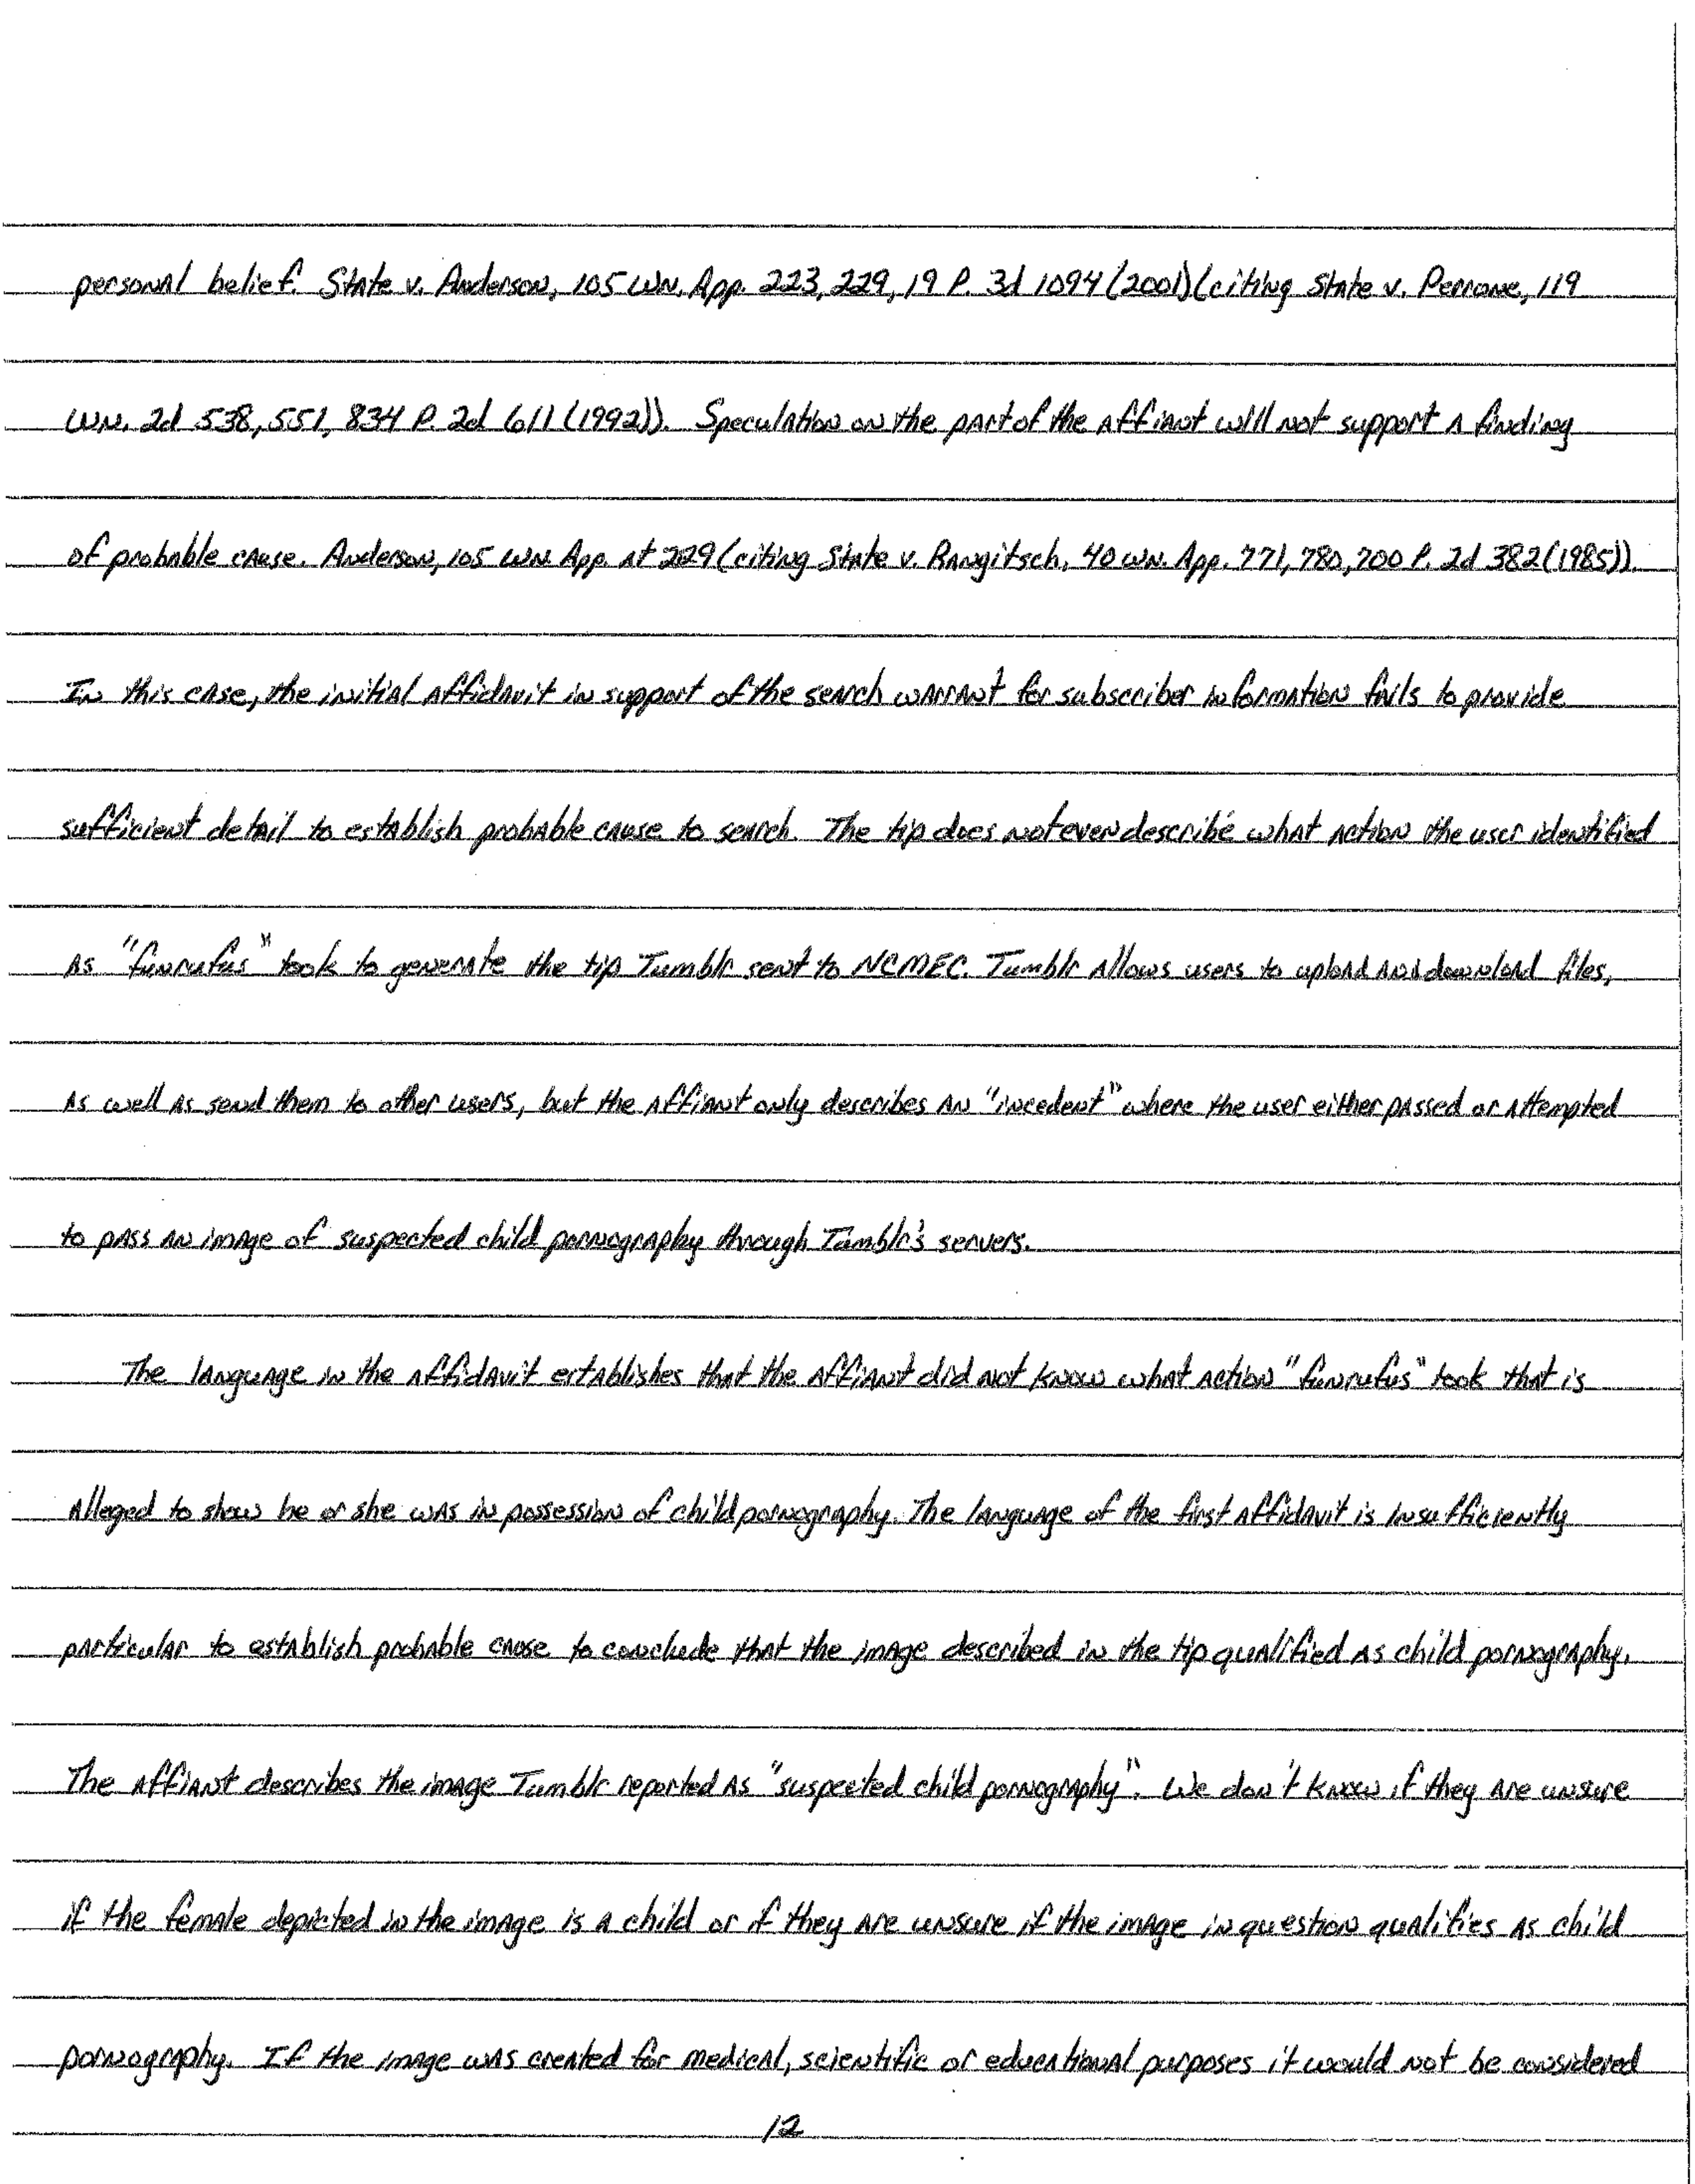 personal belief. State v. Anderson, 105 Wn. App. 223, 229, 19 P. 3d 1094 (2001) (citing State v. Perrone, 119
Wn. 2d 538, 551, 834 P. 2d 611 (1992)). Speculation on the part of the affiant will not support a finding
of probable cause. Anderson, 105 Wn. App. at 229 (citing State v. Rangitsch, 40 Wn. App. 771, 780, 700 P. 2d 382 (1985)).
In this case, the initial affidavit in support of the search warrant for subscriber information fails to provide
sufficient detail to establish probable cause to search. The tip does not even describe what action the user identified
as "funrufus" took to generate the tip Tumblr sent to NCMEC. Tumblr allows users to upload and download files,
as well as send them to other users, but the affiant only describes an "incedent" where the user either passed or attempted
to pass an image of suspected child pornography through Tumblr's servers.
The language in the affidavit establishes that the affiant did not know what action "funrufus" took that is
alleged to show he or she was in possession of child pornography. The language of the first affidavit is insufficiently
particular to establish probable cause to conclude that the image described in the tip qualified as child pornography.
The affiant describes the image Tumblr reported as "suspected child pornography". We don't know if they are unsure
if the female depicted in the image is a child or if they are unsure if the image in question qualifies as child
pornography. If the image was created for medical, scientific or educational purposes it would not be considered
12